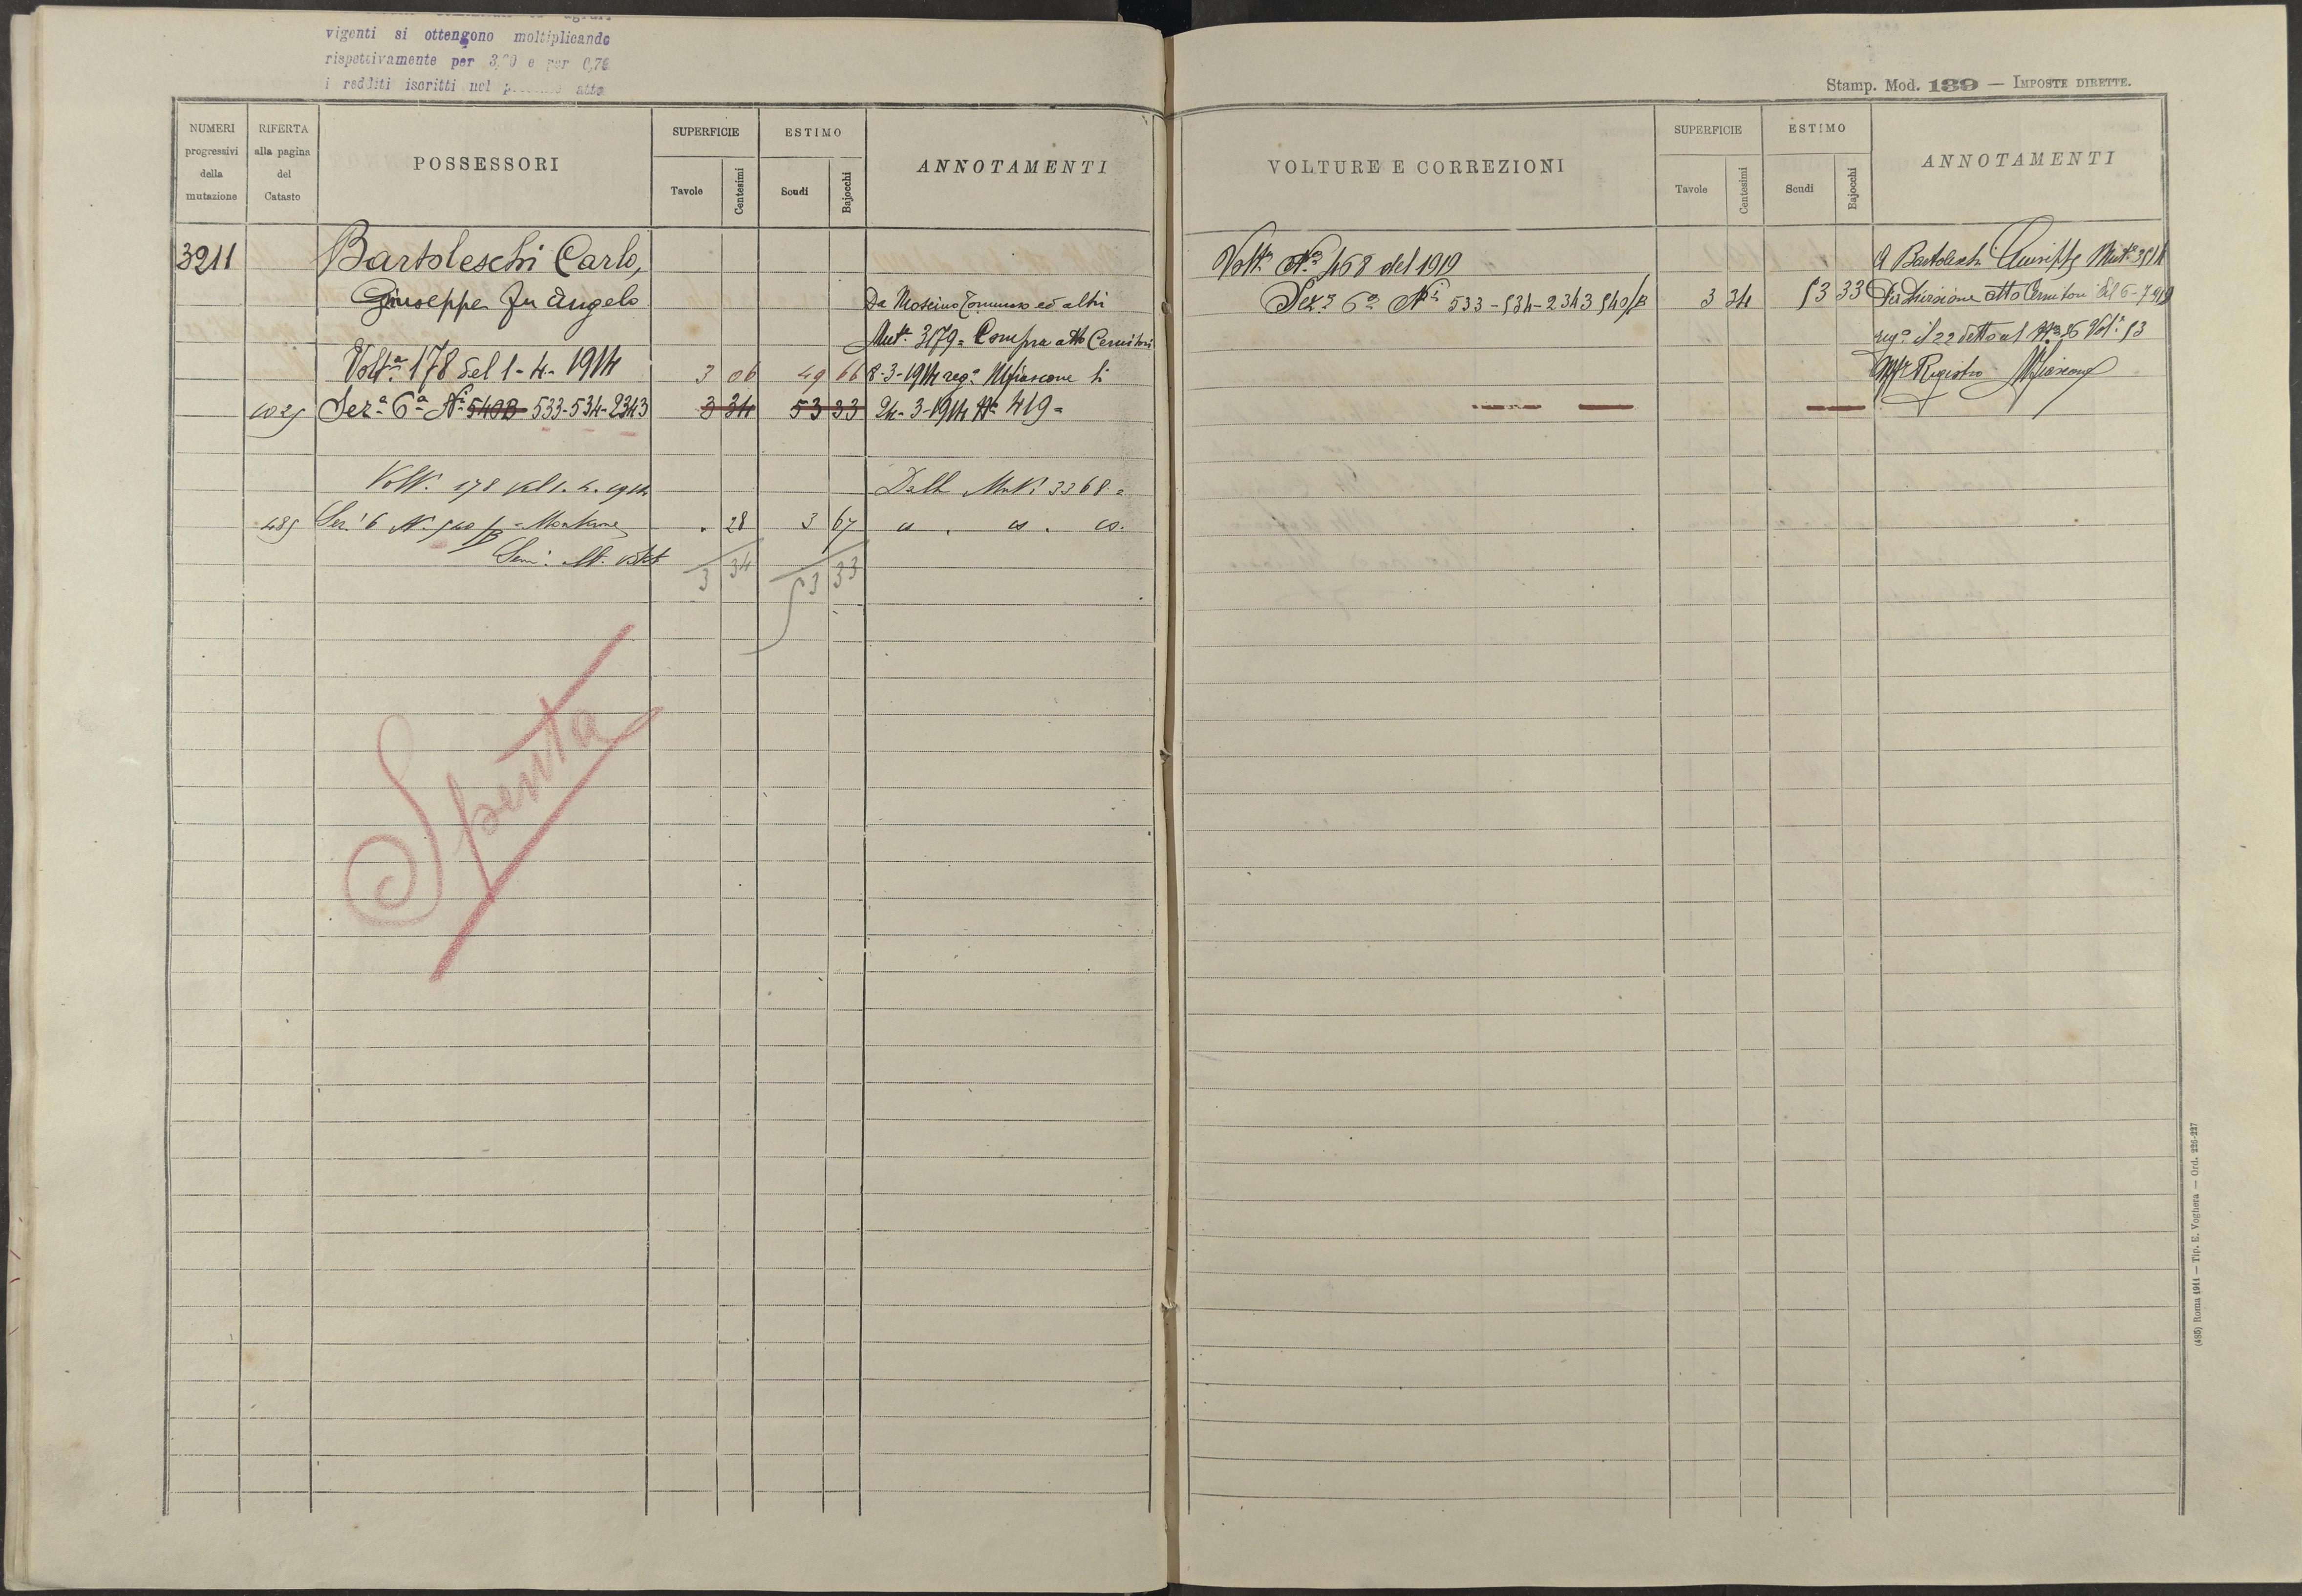 vigenti si ottengono moltiplicando
rispettivamente per 3,20 e per 0,76
i redditi iscritti nel atto
Stamp. Mod. 139 — IMPOSTE DIRETTE.
NUMERI progressivi della mutazione
RIFERTA alla pagina del Catasto
POSSESSORI
SUPERFICIE
Tavole
Centesimi
ESTIMO
Scudi
Bajocchi
ANNOTAMENTI
3211 Bartoleschi Carlo,
Giuseppe fu Angelo Da Moscino Tommaso ed altri
Mut.e 3179 = Compra atto Cernitori
Volt.a 178 del 1-4-1914 3 06 49 66 8-3-1914 reg.o Mfiascone li
1025 Sez.a 6a Ni 540B 533-534-2343 3 34 53 33 24-3-1914 No 419=
Volt. 178 del 1.4.1914 Dalla Mut. 3368 =
485 Sez. 6 N. 540/B = Montarone . 28 3 67 a . a . a.
Sem. Al. Vit.
3 34 53 33
Spenta
VOLTURE E CORREZIONI
SUPERFICIE
Tavole
Centesimi
ESTIMO
Scudi
Bajocchi
ANNOTAMENTI
Volt.a No 468 del 1919 A Bartoleschi Giuseppe Mut.e 3514
Sez.a 6a Ni 533-534-2343 540/B 3 34 53 33 Per divisione atto Cernitori del 6-7-919
reg.o il 22 detto al No 36 Vol. 53
Registro Mfiascone
(485) Roma 1911 — Tip. E. Voghera — Ord. 226-227